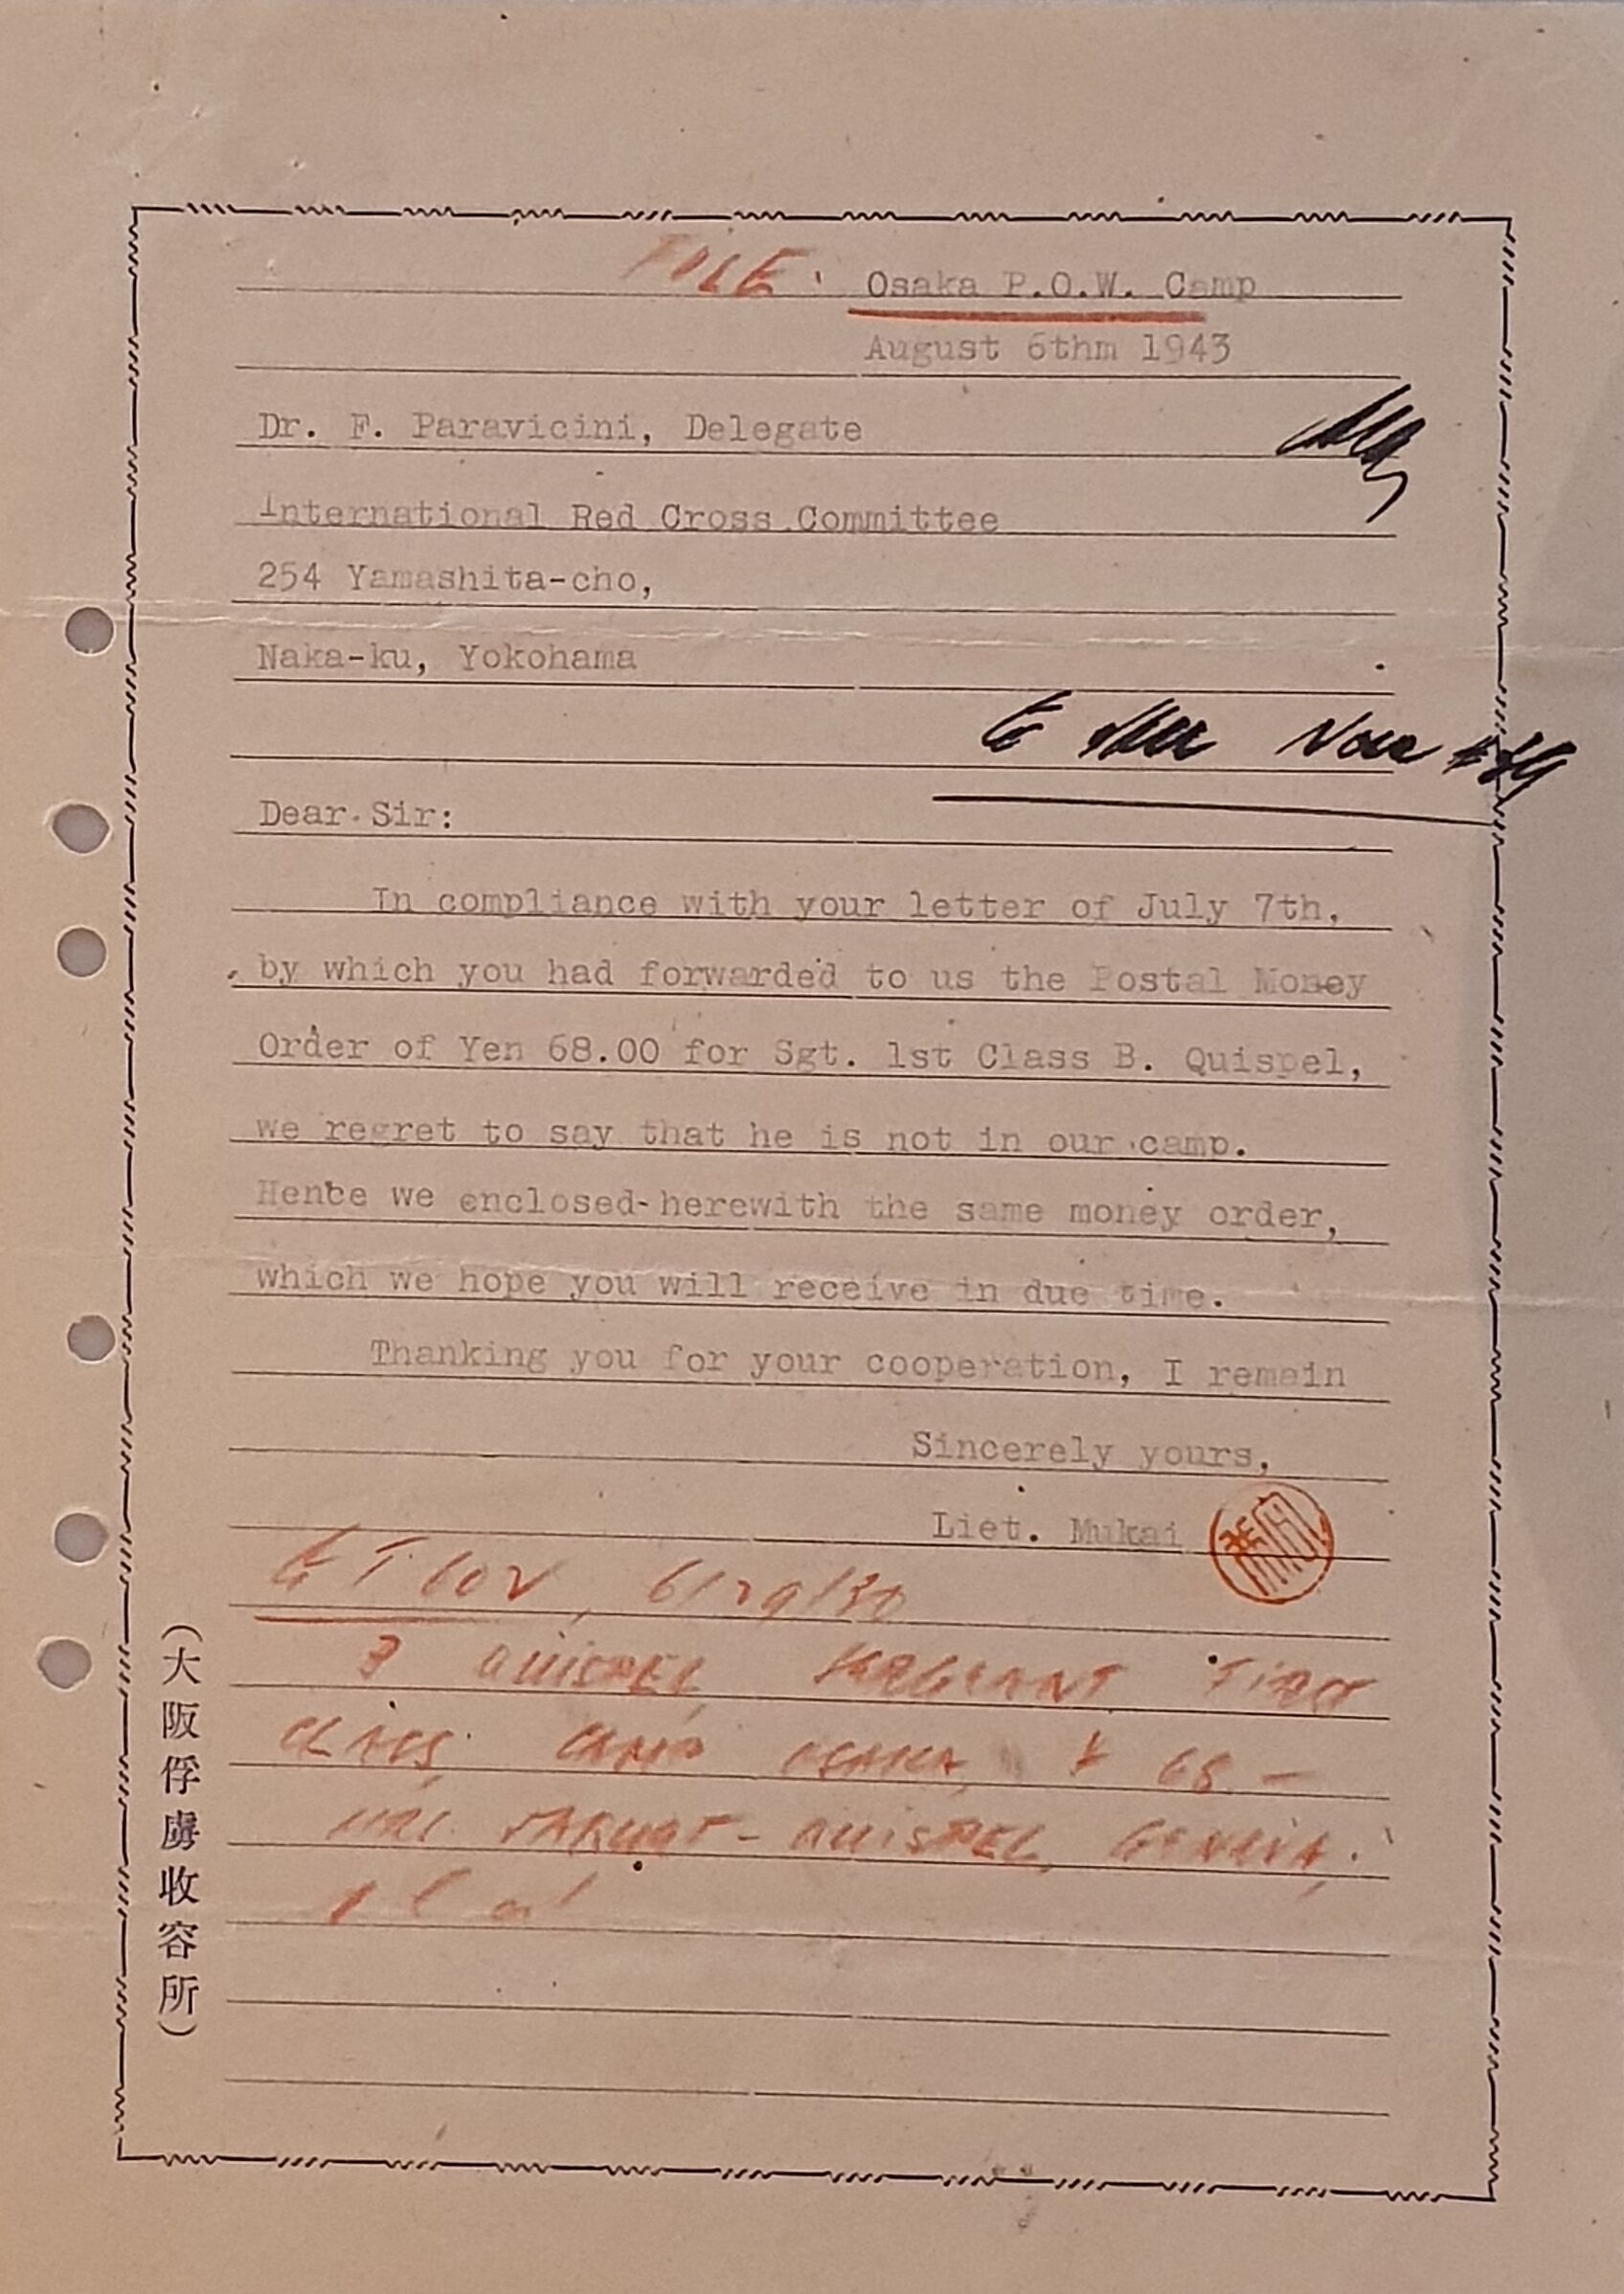 FILE: Osaka P.O.W. Camp
August 6thm 1943
Dr. F. Paravicini, Delegate
International Red Cross Committee
254 Yamashita-cho,
Naka-ku, Yokohama
Dear Sir:
In compliance with your letter of July 7th,
by which you had forwarded to us the Postal Money
Order of Yen 68.00 for Sgt. 1st Class B. Quispel,
we regret to say that he is not in our camp.
Hence we enclosed herewith the same money order,
which we hope you will receive in due time.
Thanking you for your cooperation, I remain
Sincerely yours,
Liet. Mukai
QUISPEL, SERGEANT FIRST
CLASS CAMP OSAKA, ¥ 68.-
QUISPEL, GENEVA.
(大阪俘虜收容所)